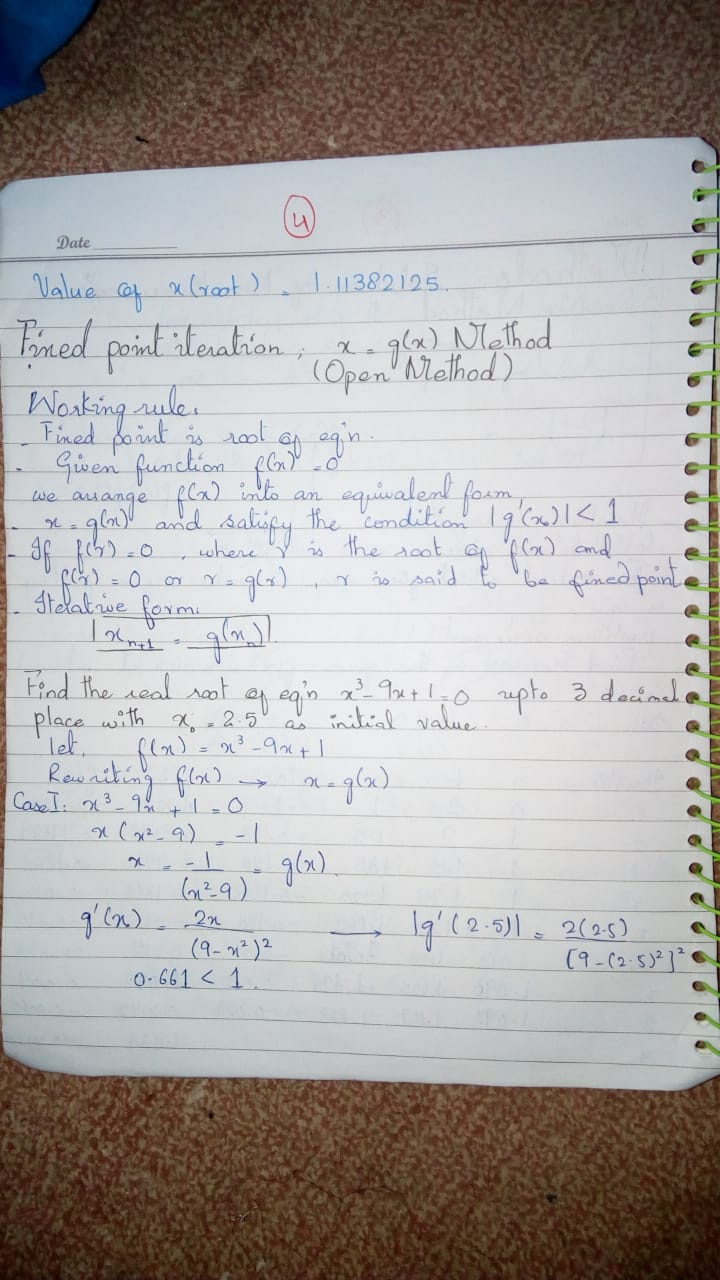 4
Date
Value of x(root) = 1.11382125.
Fixed point iteration; x = g(x) Method
(Open Method)
Working rule:
- Fixed point is root of eq'n.
- Given function f(x) = 0
we arrange f(x) into an equivalent form,
- x = g(x) and satisfy the condition |g'(x₀)| < 1
- If f(r) = 0, where r is the root of f(x) and
f(r) = 0 or r = g(r), r is said to be fixed point
- Iterative form:
xₙ₊₁ = g(xₙ)
Find the real root of eq'n x³ - 9x + 1 = 0 upto 3 decimal
place with x₀ = 2.5 as initial value.
let, f(x) = x³ - 9x + 1
Rewriting f(x) → x = g(x)
Case I: x³ - 9x + 1 = 0
x(x² - 9) = -1
x = -1/(x² - 9) = g(x).
g'(x) = 2x/(9 - x²)² → |g'(2.5)| = 2(2.5)/[9 - (2.5)²]²
0.661 < 1.